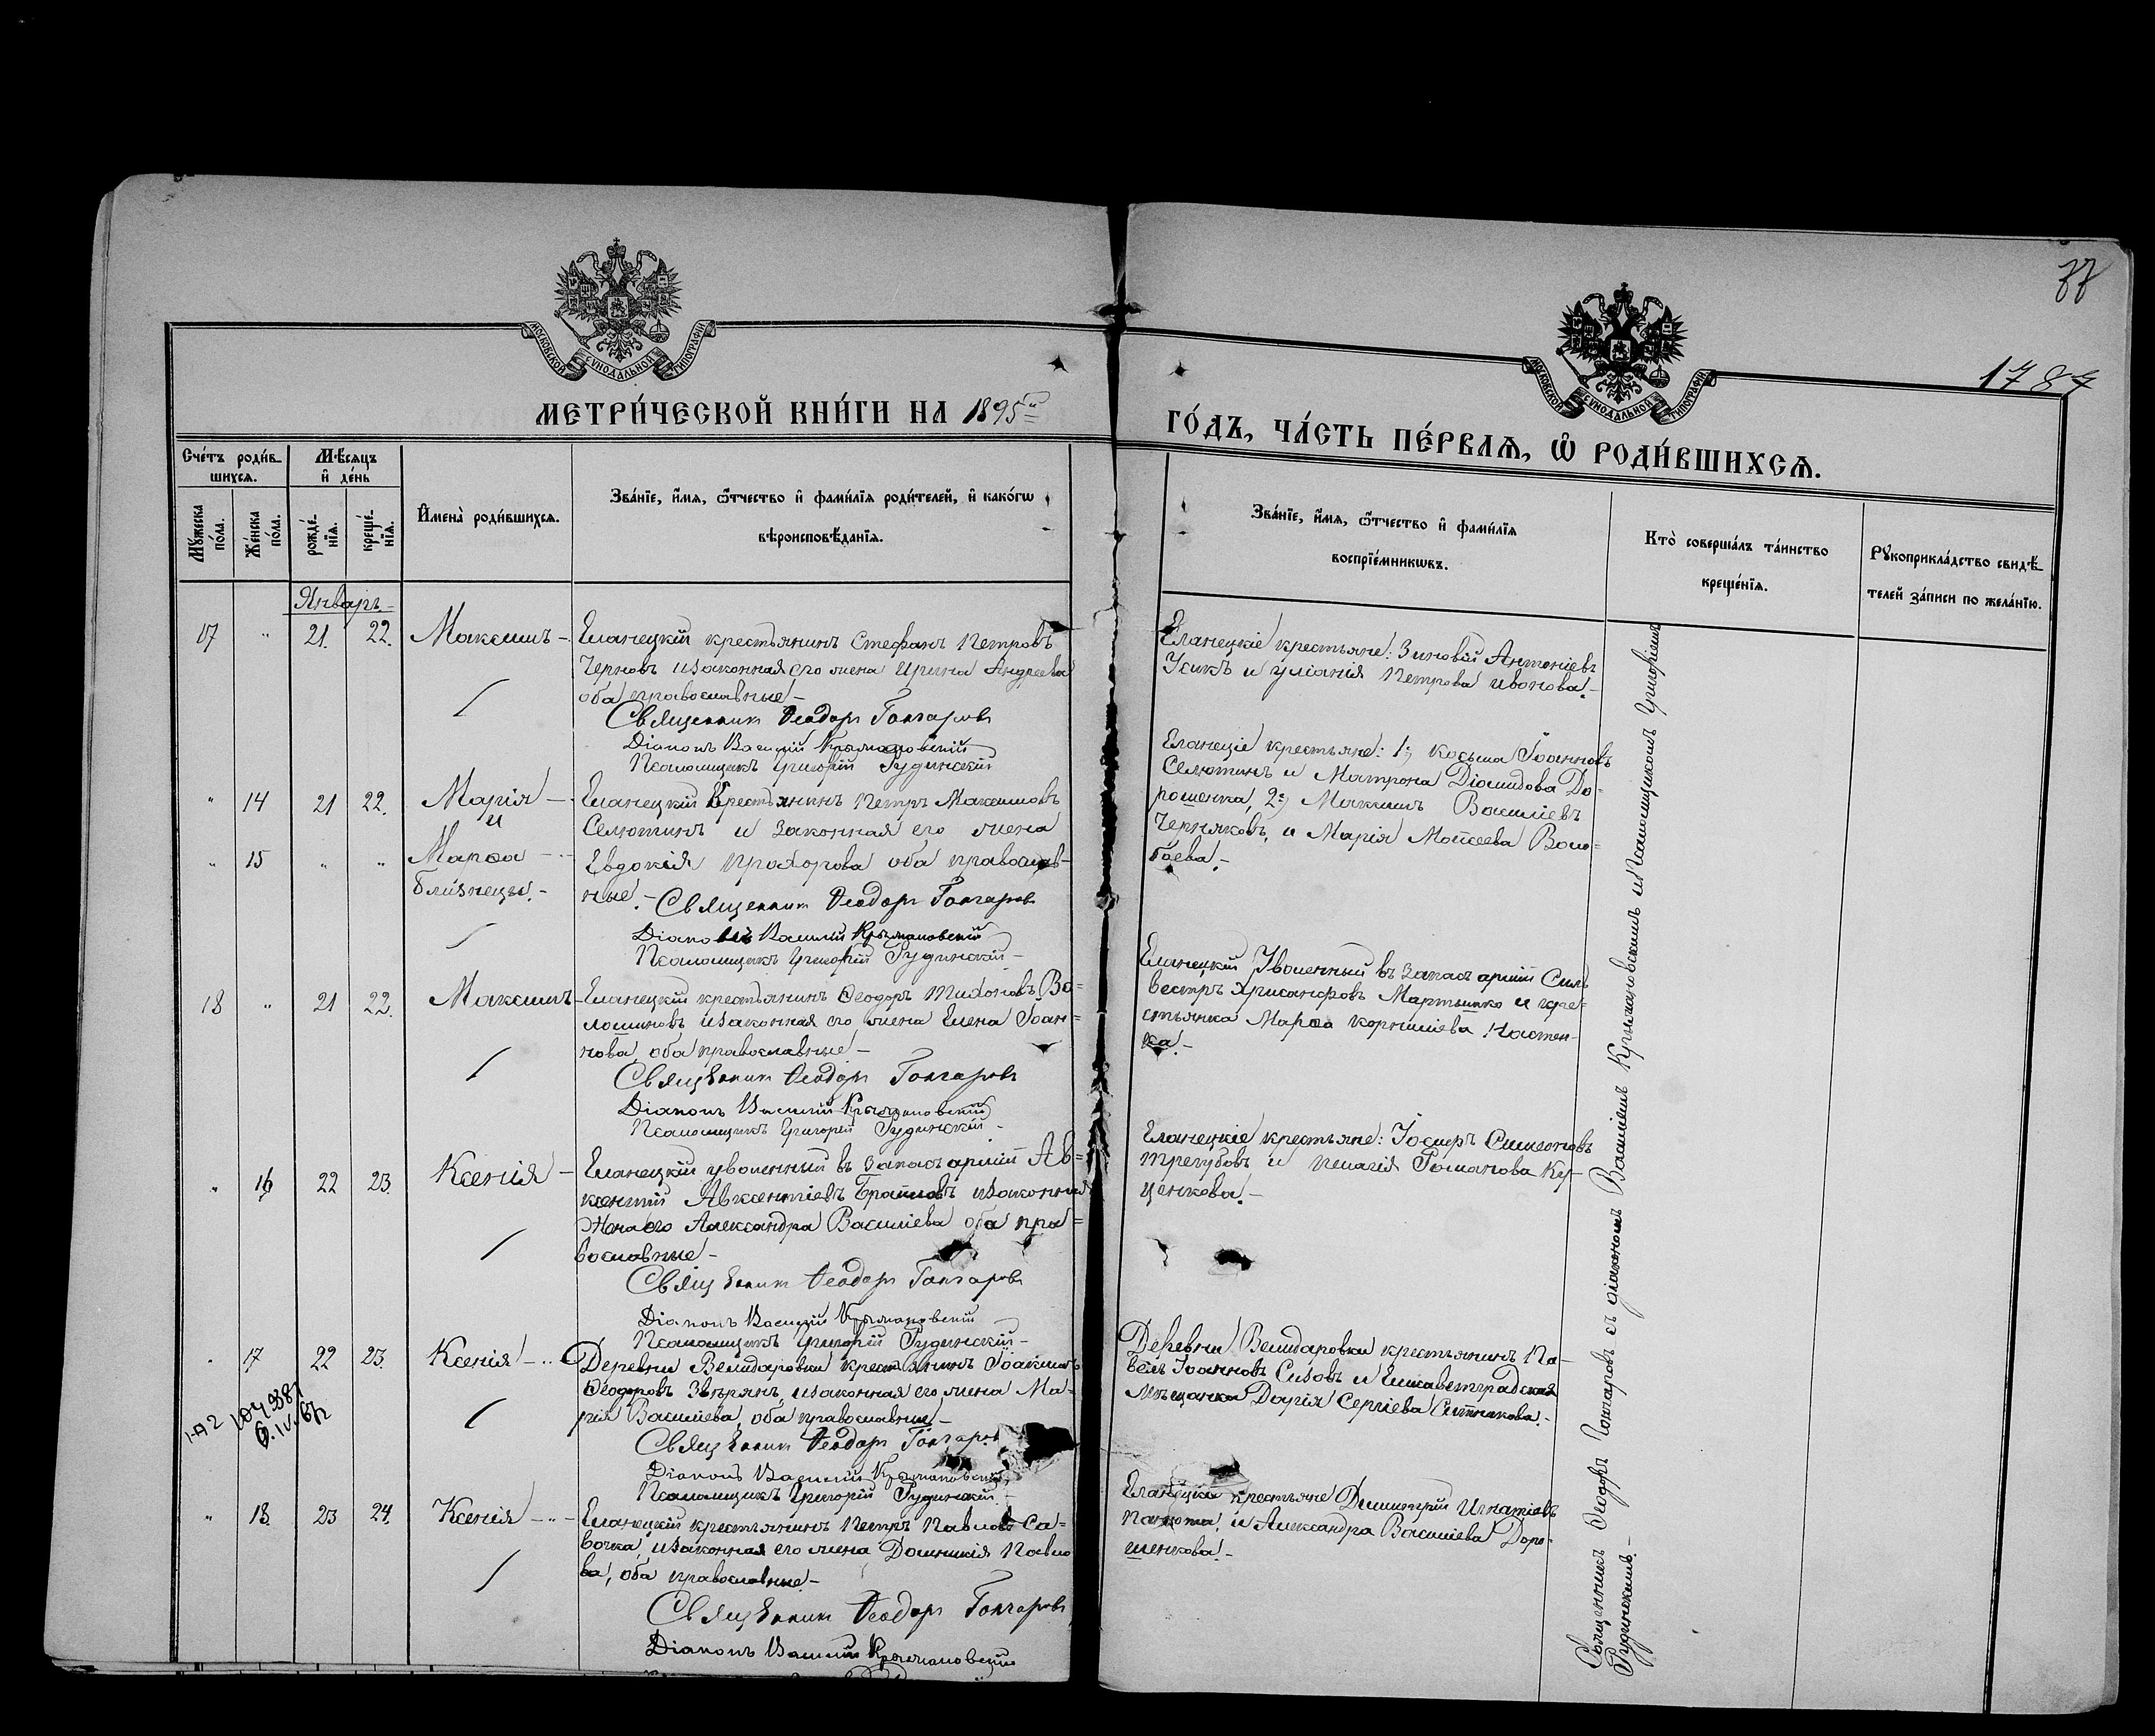 77
1787
МОСКОВСКОЙ СѴНОДАЛЬНОЙ ТИПОГРАФІИ
МОСКОВСКОЙ СѴНОДАЛЬНОЙ ТИПОГРАФІИ
МЕТРИ́ЧЕСКОЙ КНИ́ГИ НА 1895й
ГО́ДЪ, ЧА́СТЬ ПЕ́РВАѦ, Ѡ҆ РОДИ́ВШИХСѦ.
Сче́тъ роди́в-
шихсѧ.
Мꙋжеска по́ла.
Же́нска по́ла.
Мѣ́сѧцъ
и҆ де́нь
рожде́-
нїѧ.
креще́-
нїѧ.
И҆мена̀ роди́вшихсѧ.
Зва́нїе, и҆́мѧ, ѻ҆́тчество и҆ фами́лїѧ роди́телей, и҆ како́гѡ
вѣроисповѣ́данїѧ.
Зва́нїе, и҆́мѧ, ѻ҆́тчество и҆ фами́лїѧ
воспрїе́мникѡвъ.
Кто̀ соверша́лъ та́инство
креще́нїѧ.
Рꙋкоприкла́дство свидѣ́-
телей за́писи по жела́нїю.
Январь
17 " 21. 22. Максимъ –
Еланецкій крестьянинъ Стефанъ Петровъ
Черновъ и законная его жена Ирина Андреева
оба православные –
Священникъ Ѳеодоръ Гончаровъ
Діаконъ Василій Крыжановскій
Псаломщикъ Григорій Рудинскій
Еланецкіе крестьяне: Зиновій Антоніевъ
Усикъ и Уліанія Петрова Иванова. –
" 14 21 22. Марія –
и
" 15 " " Марѳа –
близнецы. –
Еланецкій крестьянинъ Петръ Максимовъ
Селютинъ и законная его жена
Евдокія Прохорова оба православ-
ные. – Священникъ Ѳеодоръ Гончаровъ
Діаконъ Василій Крыжановскій
Псаломщикъ Григорій Рудинскій –
Еланеціе крестьяне: 1; Косьма Іоанновъ
Селютинъ и Матрона Діомидова До-
рошенка, 2; Максимъ Василіевъ
Черняковъ, и Марія Моисеева
баева. –
18 " 21 22. Максимъ –
Еланецкій крестьянинъ Ѳеодоръ Тихоновъ Во-
лошиновъ и законная его жена Елена Іоан-
нова, оба православные –
Священникъ Ѳеодоръ Гончаровъ
Діаконъ Василій Крыжановскій
Псаломщикъ Григорій Рудинскій –
Еланецкій Уволенный въ запасъ арміи Силь
вестръ Хрисанфовъ Мартынко и кре-
стьянка Марѳа Корниліева
ка. –
" 16 22 23. Ксенія –
Еланецкій уволенный въ запасъ арміи Ав-
ксентій Авксентіевъ Браиловъ и законная
жена его Александра Василіева оба пра-
вославные –
Священникъ Ѳеодоръ Гончаровъ
Діаконъ Василій Крыжановскій
Псаломщикъ Григорій Рудинскій –
Еланецкіе крестьяне: Іосифъ Симеоновъ
Трегубовъ и Пелагія Романова Ку-
ценкова. –
" 17 22 23. Ксенія –
Деревни Велидаровки крестьянинъ Іоакимъ
Ѳеодоровъ Звѣрянъ, и законная его жена Ма-
рія Василіева, оба православные –
Священникъ Ѳеодоръ Гончаровъ
Діаконъ Василій Крыжановскій
Псаломщикъ Григорій Рудинскій –
Деревни Велидаровки крестьянинъ Па-
велъ Іоанновъ Сизовъ и Елисаветградская
Мѣщанка Дарія Сергіева Ситникова. –
" 18. 23 24. Ксенія –
Еланецкій крестьянинъ Петръ Павловъ Са-
вочка, и законная его жена Домникія Павло
ва, оба православные –
Священникъ Ѳеодоръ Гончаровъ
Діаконъ Василій Крыжановскій
Еланецкіе крестьяне Димитрій Игнатіевъ
Панюта, и Александра Василіева Доро-
шенкова. –
Священникъ Ѳеодоръ Гончаровъ съ діакономъ Василіемъ Крыжановскимъ и Псаломщикомъ Григоріемъ
Рудинскимъ. –